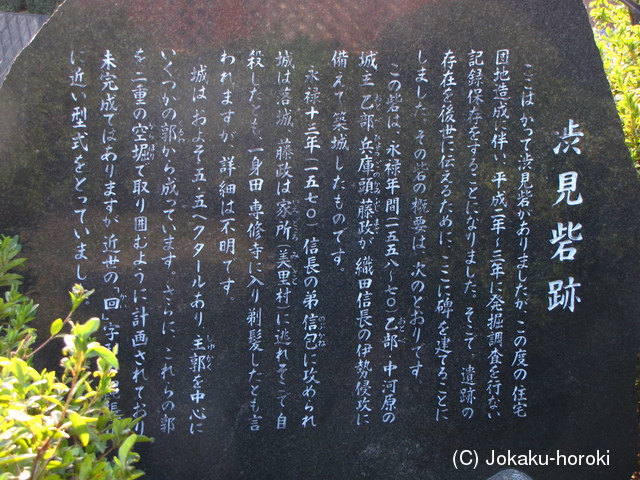 渋見砦跡
ここはかつて渋見砦がありましたが、この度の住宅
団地造成に伴い、平成二年〜三年に発掘調査を行ない
記録保存をすることになりました。そこで、遺跡の
存在を後世に伝えるために、ここに碑を建てることに
しました。その砦の概要は、次のとおりです。
この砦は、永禄年間(一五五八〜七〇)乙部、中河原の
城主 乙部 兵庫頭藤政が 織田信長の伊勢侵攻に
備えて築城したものです。
永禄十三年(一五七〇)信長の弟信包に攻められ
城は落城、藤政は家所(美里村)に逃れそこで自
殺したとも、一身田 専修寺に入り剃髪したとも言
われますが、詳細は不明です。
城は、およそ五・五ヘクタールあり、主郭を中心に
いくつかの郭から成っています。さらに、これらの郭
を二重の空堀で取り囲むように計画されており
未完成ではありますが近世の「回」字
に近い型式をとっていまし
(C) Jokaku-horoki